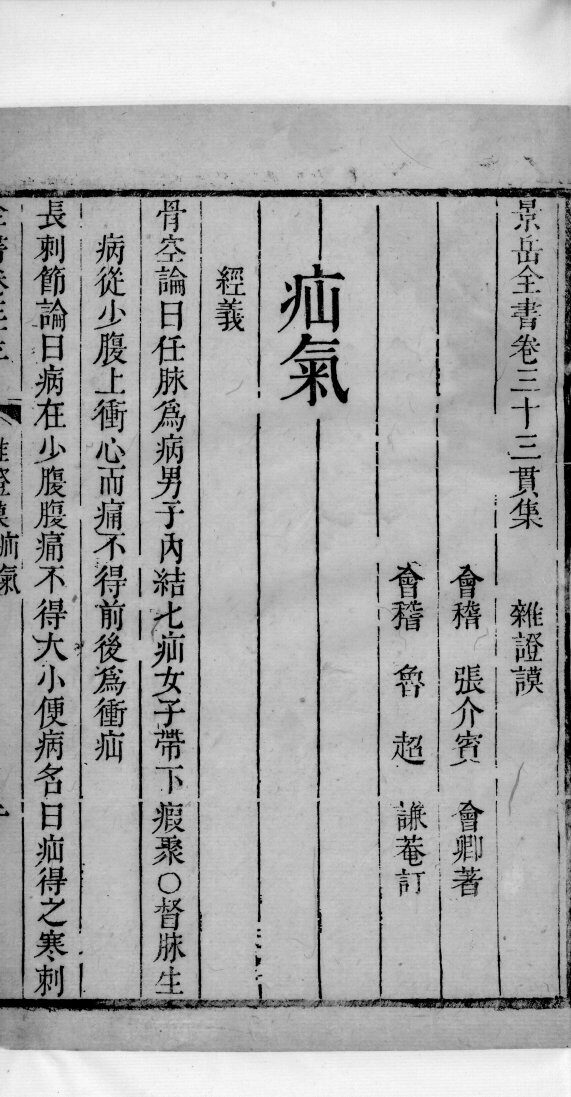 景岳全書卷三十三貫集　雜證謨
會稽　張介賓　會卿著
會稽　魯超　謙菴訂
疝氣
經義
骨空論曰任脉為病男子內結七疝女子帶下瘕聚○督脉生
病從少腹上衝心而痛不得前後為衝疝
長刺節論曰病在少腹腹痛不得大小便病名曰疝得之寒刺